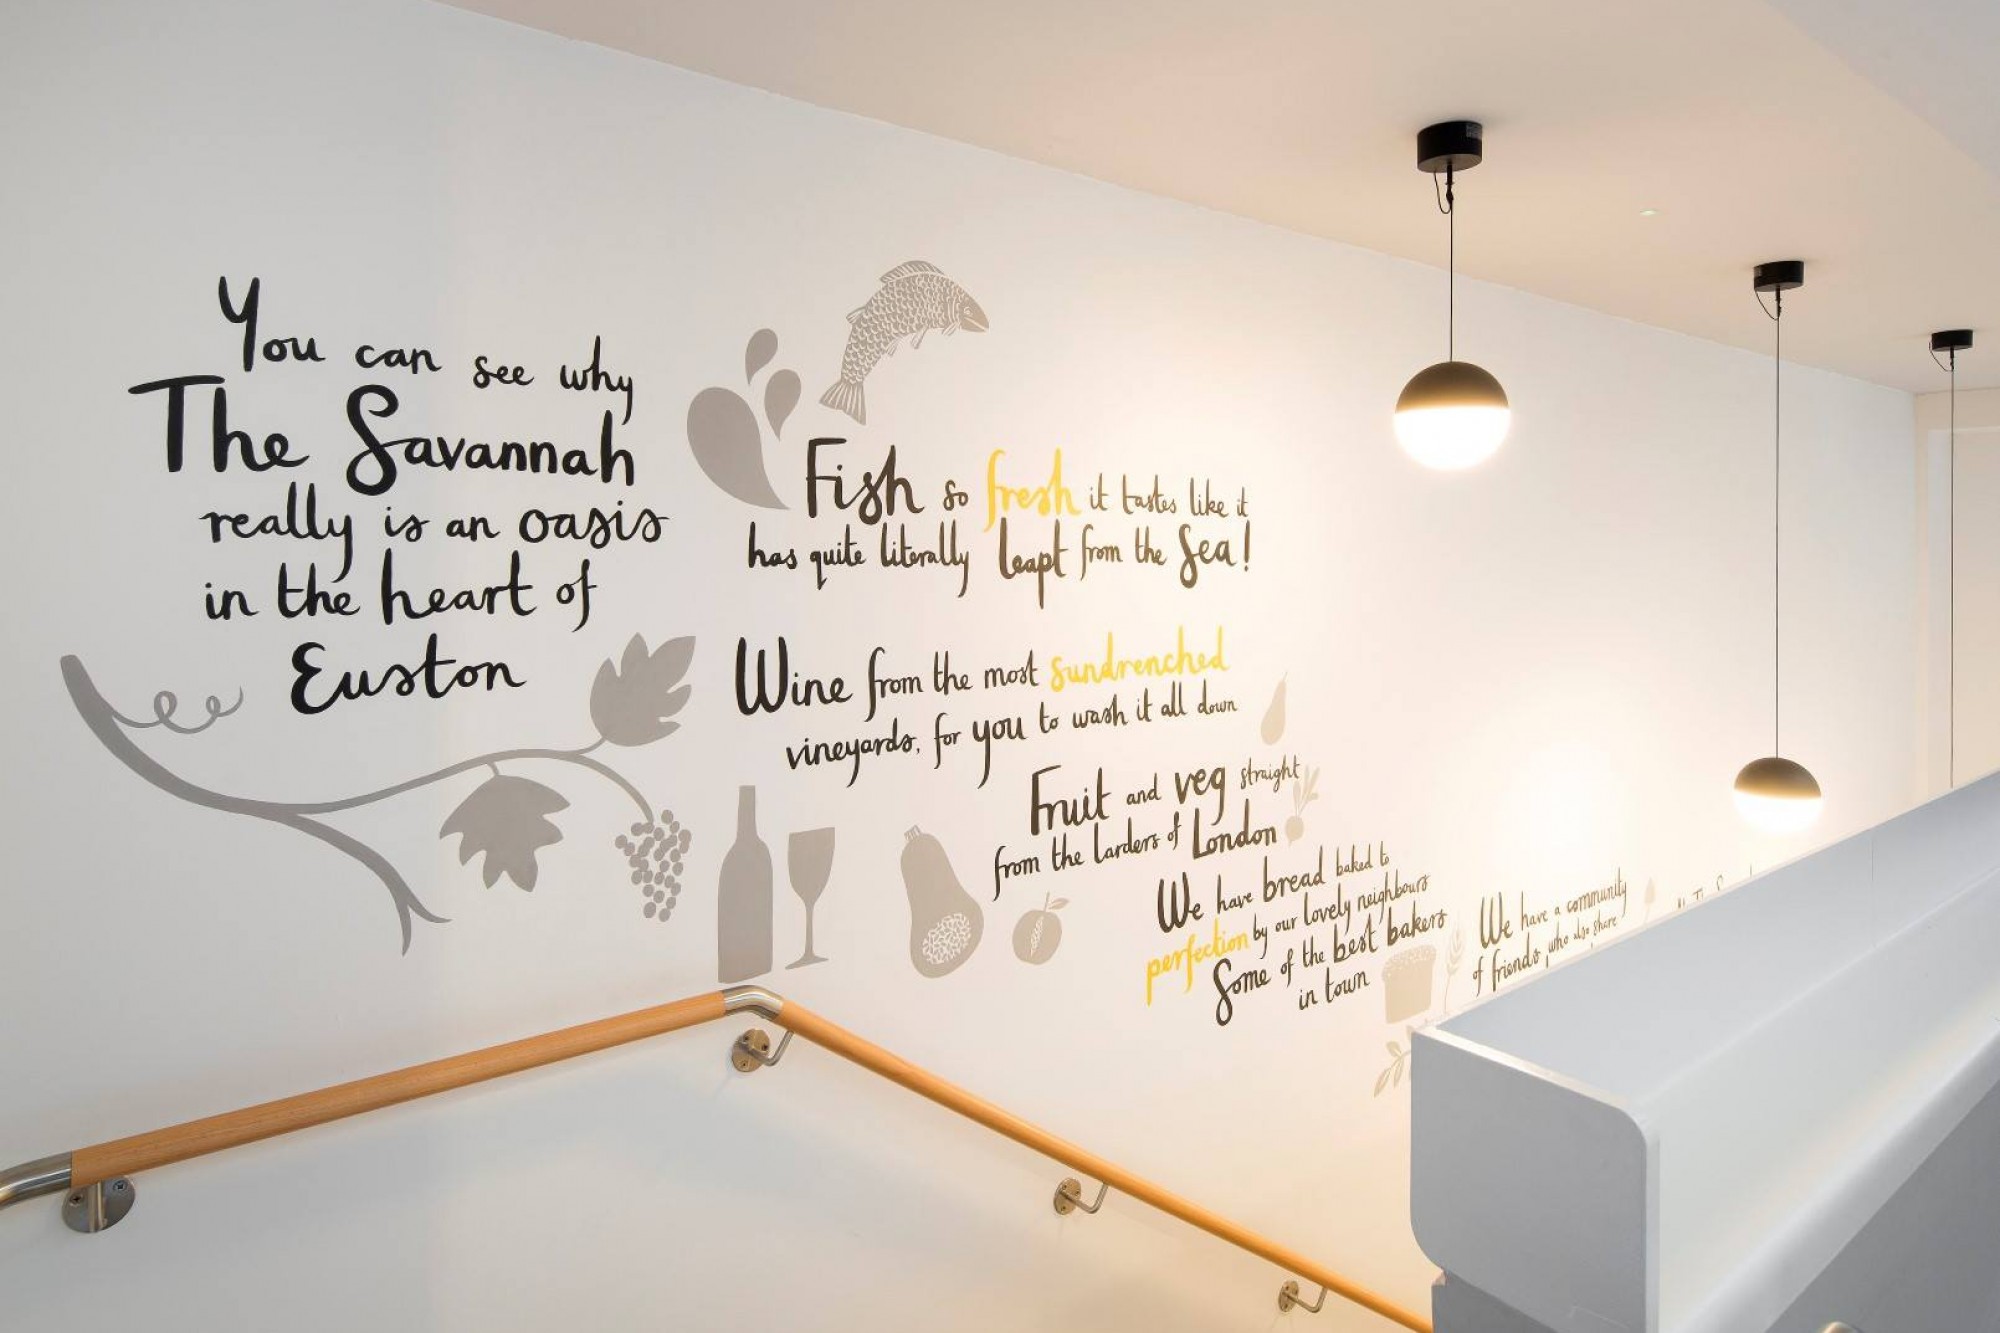 You can see why
The Savannah
really is an oasis
in the heart of
Euston
Fish so fresh it tastes like it
has quite literally leapt from the Sea!
Wine from the most sundrenched
vineyards, for you to wash it all down
Fruit and veg straight
from the larders of London
We have bread baked to
perfection by our lovely neighbours
Some of the best bakers
in town
We have a community
of friends, who also share